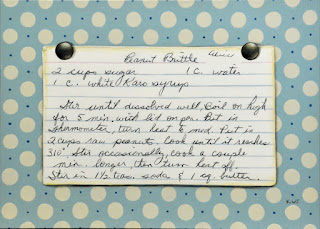 Peanut Brittle
2 cups sugar 1 C. water
1 C. white Karo syrup
Stir until dissolved well, Boil on high
for 5 min. with lid on pan. Put in
thermometer, turn heat to med. Put in
2 cups raw peanuts. Cook until it reaches
310° Stir occasionally, cook a couple
min. longer, then turn heat off.
Stir in 1 1/2 teas. soda & 1 sq. butter.